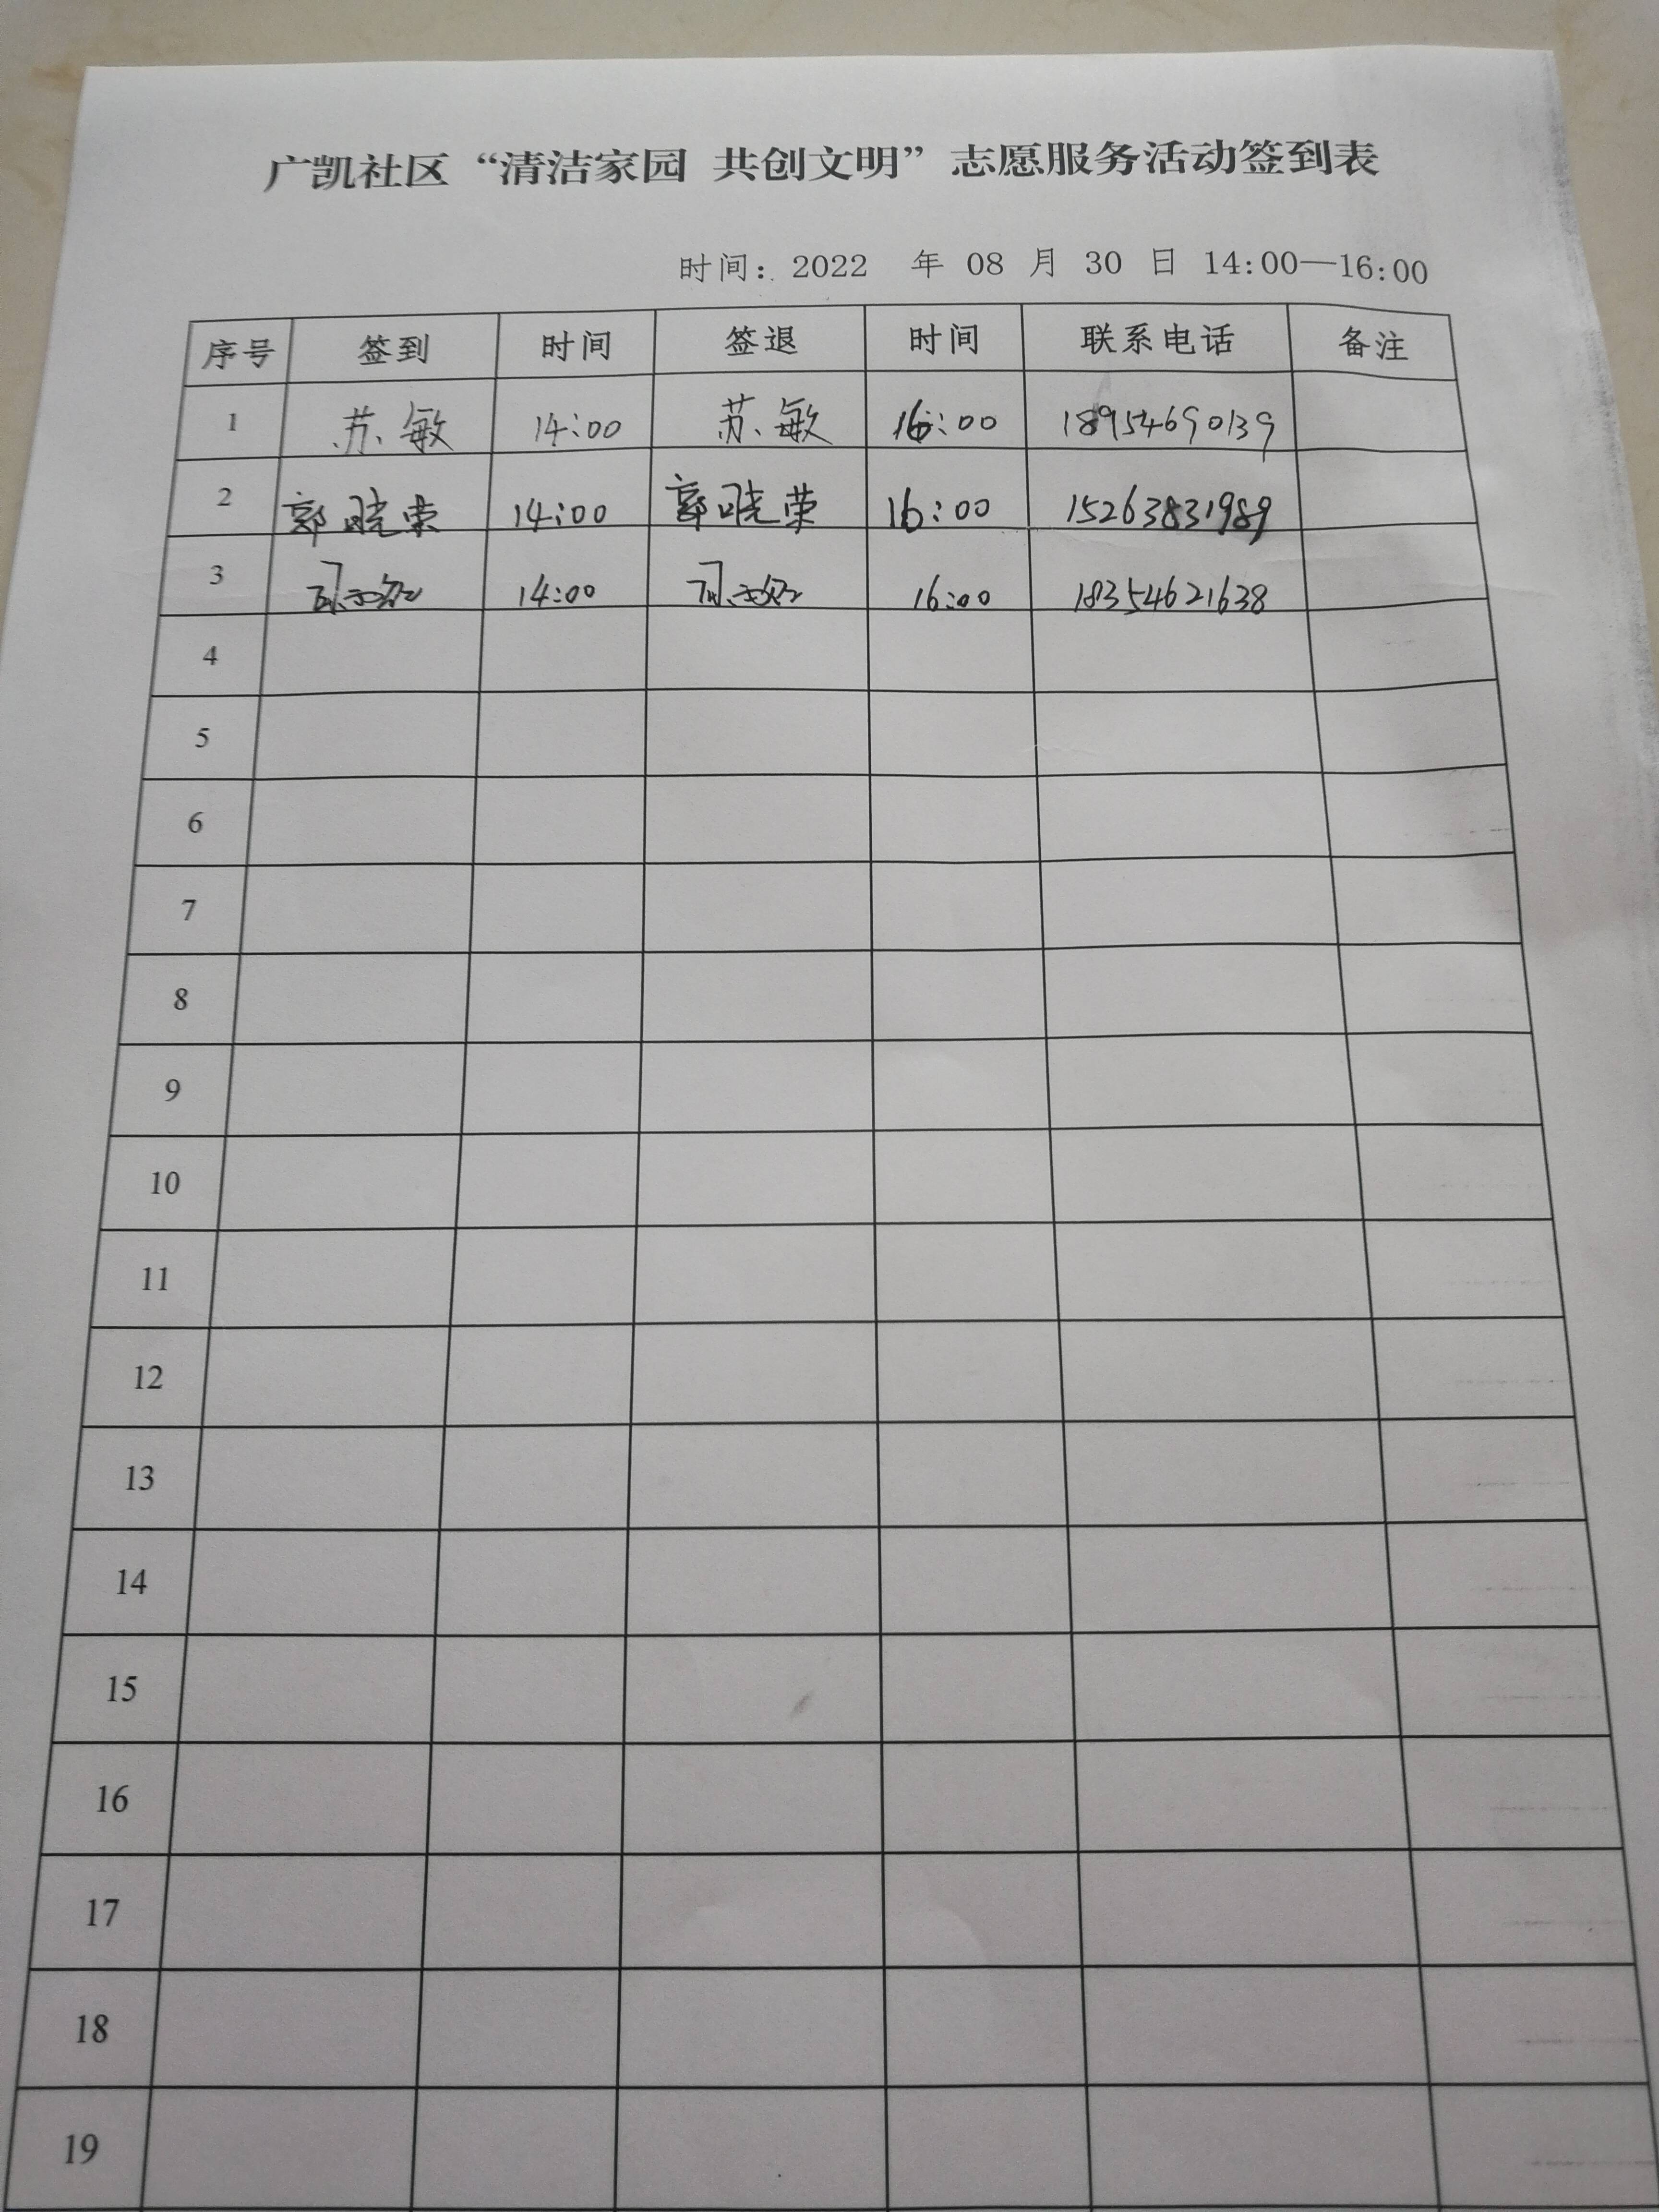 广凯社区“清洁家园 共创文明”志愿服务活动签到表
时间：2022 年 08 月 30 日 14:00—16:00
序号 签到 时间 签退 时间 联系电话 备注
1 苏敏 14:00 苏敏 16:00 18954690139
2 郭晓荣 14:00 郭晓荣 16:00 15263831989
3 14:00 16:00 18354621638
4
5
6
7
8
9
10
11
12
13
14
15
16
17
18
19